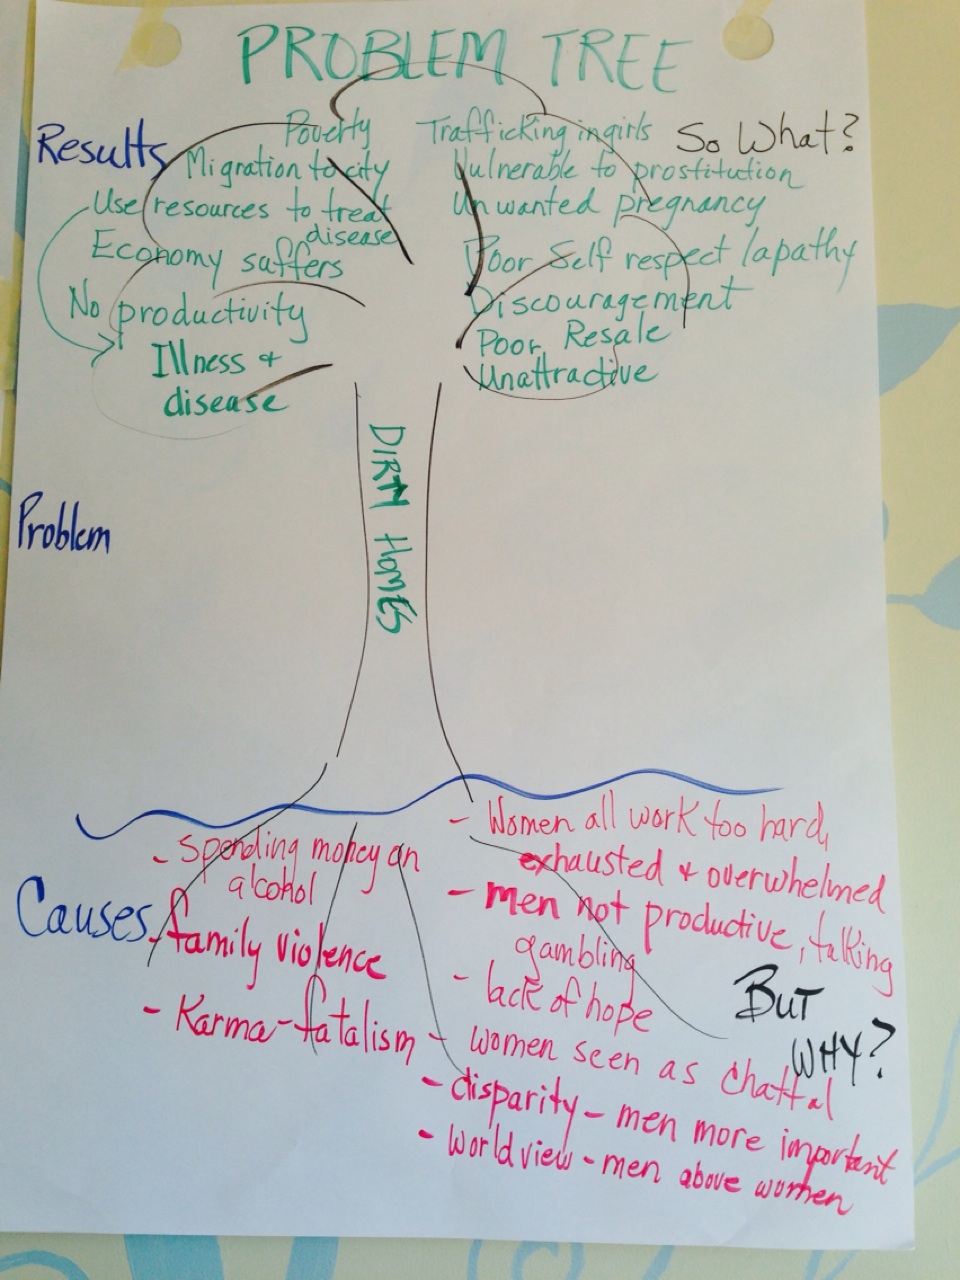 PROBLEM TREE
Results
Poverty
Migration to city
Use resources to treat
disease
Economy suffers
No productivity
Illness +
disease
Trafficking in girls
So What?
Vulnerable to prostitution
Unwanted pregnancy
Poor Self respect / apathy
Discouragement
Poor Resale
Unattractive
Problem
DIRTY HOMES
Causes
- Spending money on
alcohol
- family violence
- Karma-fatalism
- Women all work too hard,
exhausted + overwhelmed
- men not productive, talking
gambling
- lack of hope
- women seen as chattal
- disparity - men more important
- world view - men above women
BUT
WHY?